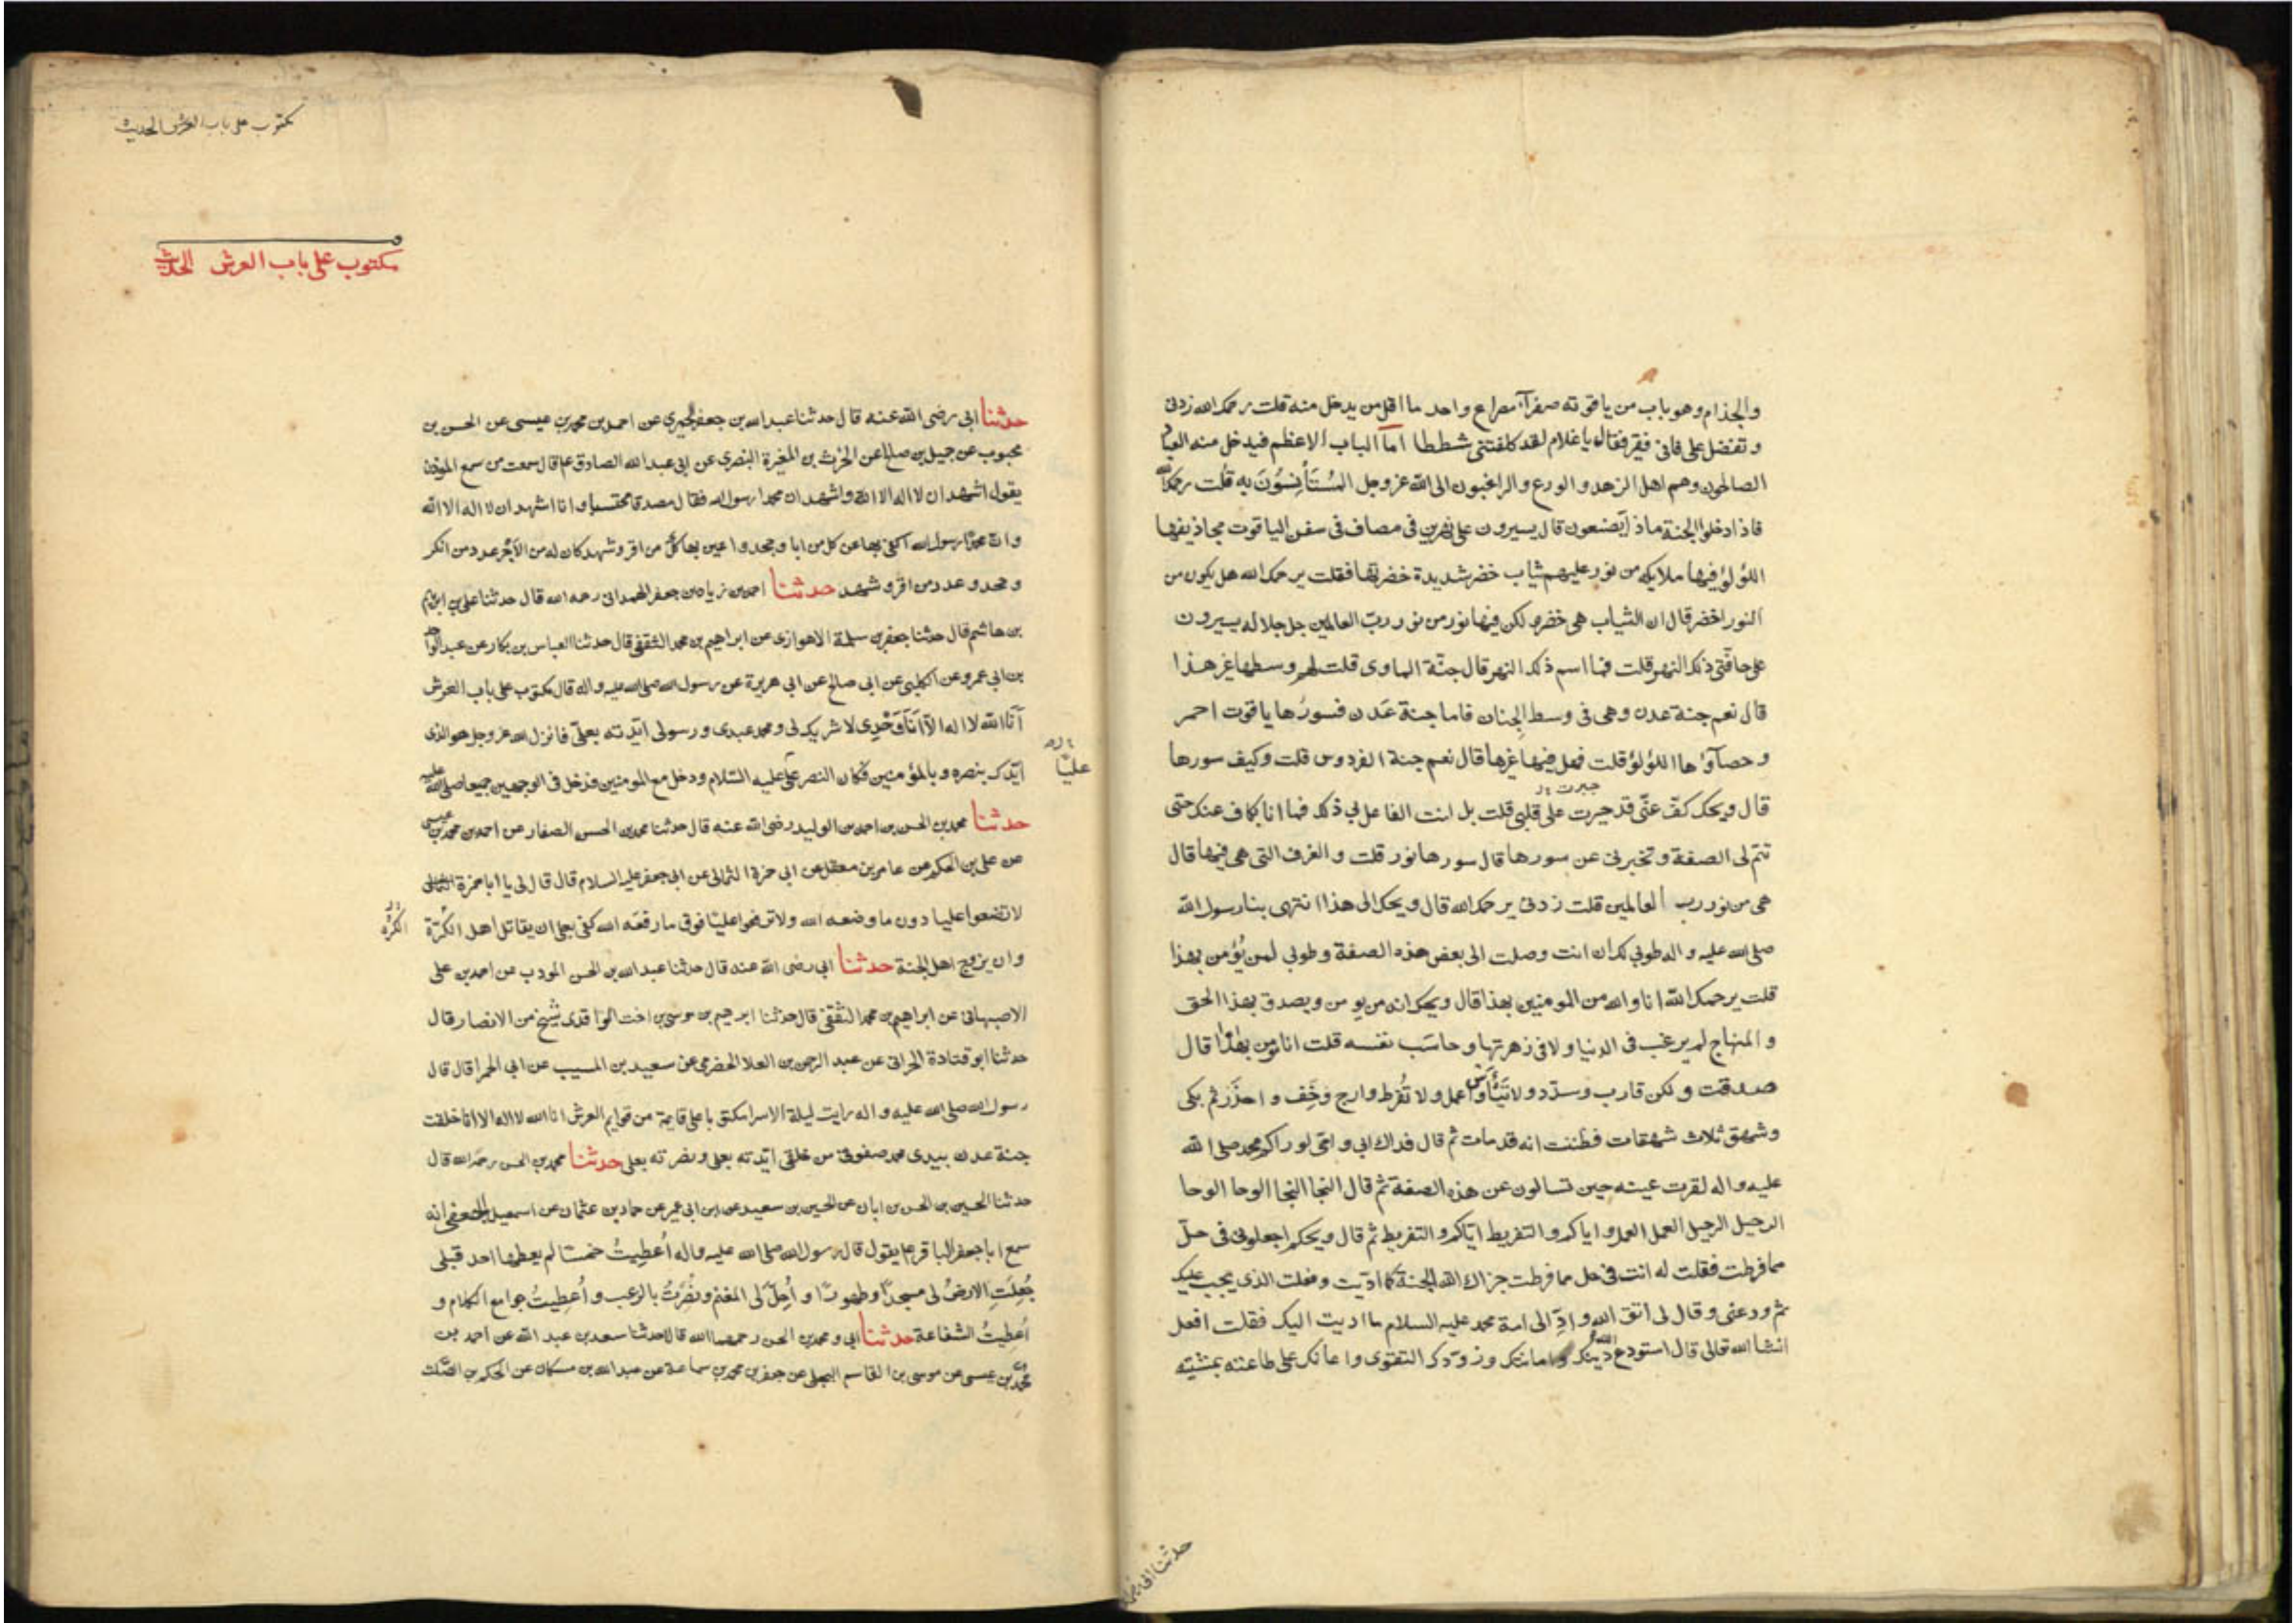 والجذام وهو باب من ياقوته صفرآء مصراع واحد ما اقل من يدخل منه قلت رحمك الله زدنى
وتفضل على فانى فقير فقال يا غلام لقد كلفتنى شططا اما الباب الاعظم فيدخل منه العباد
الصالحون وهم اهل الزهد والورع والراغبون الى الله عز وجل المُسْتَأنِسُوْنَ به قلت رحمك الله
فاذا دخلوا الجنة ماذا يصنعون قال يسيرون على نهرين في مصاف فى سفن الياقوت مجاذيفها
اللؤلؤ فيها ملايكه من نور عليهم ثياب خضر شديدة خضرتها فقلت يرحمك الله هل يكون من
النور اخضر قال ان الثياب هى خضر ولكن فيها نور من نور ربّ العالمين جل جلاله يسيرون
على حافتى ذلك النهر قلت فما اسم ذلك النهر قال جنّة الماوى قلت هل وسطها غير هذا
قال نعم جنة عدن وهى فى وسط الجنان فاما جنة عَدن فسورُها ياقوت احمر
وحصآؤها اللؤلؤ قلت فهل فيها غيرها قال نعم جنة الفردوس قلت وكيف سورها
جيرت
قال ويحك كفّ عنّى قد حيرت على قلبى قلت بل انت الفاعل بى ذلك فما انا بكاف عنك حتى
تتم لى الصفة وتخبرنى عن سورها قال سورها نور قلت والغرف التى هى فيها قال
هى من نور رب العالمين قلت زدنى يرحمك الله قال ويحك الى هذا انتهى بنا رسول الله
صلى الله عليه واله طوبى لك ان انت وصلت الى بعض هذه الصفة وطوبى لمن يُؤمن بهذا
قلت يرحمك الله انا والله من المومنين بهذا قال ويحك انه من يومن ويصدق بهذا الحق
والمنهاج لم يرغب فى الدنيا ولا فى زهرتها وحاسَب نفسه قلت انا مؤمن بهذا قال
صدقت ولكن قارب وسدّد ولا تَيْأس واعمل ولا تُفرط وارج وخَف واحذَر ثم بكى
وشهق ثلاث شهقات فظننت انه قد مات ثم قال فداك ابى وامى لو راكم محمد صلى الله
عليه واله لقرت عينه حين تسالون عن هذه الصفة ثم قال النجا النجا الوحا الوحا
الرحيل الرحيل العمل العمل واياكم والتفريط اياكم والتفريط ثم قال ويحكم اجعلونى فى حلّ
مما فرطت فقلت له انت فى حل مما فرطت جزاك الله الجنة كما اديت وفعلت الذى يجب عليك
ثم ودعنى وقال لى اتق الله وادّ الى امة محمد عليه السلام ما اديت اليك فقلت افعل
انشا الله تعالى قال استودع الله دينك وامانتك وزودك التقوى واعانك على طاعته بمشيّته
حدثنا ابى
مكتوب على باب العرش الحديث
مكتوب على باب العرش الحديث
حدثنا ابى رضى الله عنه قال حدثنا عبد الله بن جعفر الحميرى عن احمد بن محمد بن عيسى عن الحسن بن
محبوب عن جميل بن صالح عن الحرث بن المغيرة النصرى عن ابى عبد الله الصادق ع قال سمعت من سمع الموذن
يقول اشهد ان لا اله الا الله واشهد ان محمدا رسول الله فقال مصدقا محتسبا وانا اشهد ان لا اله الا الله
وان محمدًا رسول الله اكفى بها عن كل من ابا وجحد واعين بها كلّ من اقر وشهد كان له من الاجر عدد من انكر
وجحد وعدد من اقر وشهد حدثنا احمد بن زياد بن جعفر الهمدانى رحمه الله قال حدثنا على بن ابراهيم
بن هاشم قال حدثنا جعفر بن سلمة الاهوازى عن ابراهيم بن محمد الثقفى قال حدثنا العباس بن بكار عن عبد الواحد
بن ابى عمرو عن الكلبى عن ابى صالح عن ابى هريرة عن رسول الله صلى الله عليه واله قال مكتوب على باب العرش
اَنَا الله لا اله الّا اَنَا وَحْدِى لا شريك لى ومحمد عبدى ورسولى ايّدته بعلىّ فانزل الله عز وجل هو الذى
عليّا
ايّدك بنصره وبالمؤمنين فكان النصر على عليه السّلام ودخل مع المومنين فدخل فى الوجهين جميعا صلى الله عليه
حدثنا محمد بن الحسن بن احمد بن الوليد رضى الله عنه قال حدثنا محمد بن الحسن الصفار عن احمد بن محمد بن عيسى
عن على بن الحكم عن عامر بن معقل عن ابى حمزة الثمالى عن ابى جعفر عليه السلام قال قال لى يا ابا حمزة
لا تضعوا عليا دون ما وضعه الله ولا ترفعوا عليّا فوق ما رفعَه الله كفى بعلى ان يقاتل اهل الكرّة
الكرّه
وان يزوج اهل الجنة حدثنا ابى رضى الله عنه قال حدثنا عبد الله بن الحسن المودب عن احمد بن على
الاصبهانى عن ابراهيم بن محمد الثقفى قال حدثنا ابرهيم بن موسى بن اخت الواقدى شيخ من الانصار قال
حدثنا ابو قتادة الحرانى عن عبد الرحمن بن العلا الحضرمى عن سعيد بن المسيب عن ابى الحمرا قال قال
رسول الله صلى الله عليه واله رايت ليلة الاسرا مكتوبا على قايمة من قوايم العرش انا الله لا اله الا انا خلقت
جنة عدن بيدى محمد صفوتى من خلقى ايّدته بعلى ونصرته بعلى حدثنا محمد بن الحسن رحمه الله قال
حدثنا الحسين بن الحسن بن ابان عن الحسين بن سعيد عن ابن ابى عمير عن حماد بن عثمان عن اسمعيل الجعفى انه
سمع ابا جعفر الباقر ع يقول قال رسول الله صلى الله عليه واله اُعطِيتُ خمسًا لم يعطها احد قبلى
جُعِلَتِ الارضُ لى مسجدًا وطهورًا واُحِلّ لى المغنم ونُصِرْتُ بالرعب واُعطِيتُ جوامع الكلام و
اُعطِيتُ الشفاعة حدثنا ابى ومحمد بن الحسن رحمهما الله قالا حدثنا سعد بن عبد الله عن احمد بن
محمد بن عيسى عن موسى بن القاسم البجلى عن جعفر بن محمد بن سماعة عن عبد الله بن مسكان عن الحكم بن الصّلت